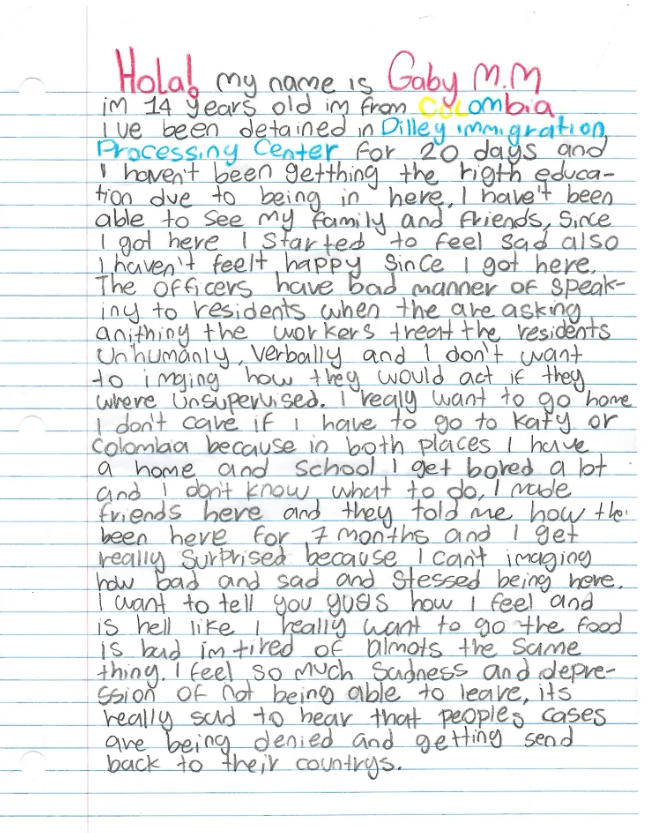 Hola! my name is Gaby M.M
im 14 years old im from COLombia
I've been detained in Dilley immigration
Processing Center for 20 days and
I haven't been getthing the rigth educa-
tion due to being in here, I have't been
able to see my family and friends, Since
I got here I started to feel sad also
I haven't feelt happy since I got here.
The officers have bad manner of speak-
iny to residents when the are asking
anithing the workers treat the residents
unhumanly, verbally and I don't want
to imging how they would act if they
where unsupervised. I realy want to go home
I don't care if I have to go to Katy or
Colombia because in both places I have
a home and school I get bored a lot
and I don't know what to do, I made
friends here and they told me how the
been here for 7 months and I get
really surprised because I can't imaging
how bad and sad and stessed being here.
I want to tell you yuors how I feel and
is hell like I really want to go the food
is bad im tired of almots the same
thing. I feel so much sadness and depre-
ssion of not being able to leave, its
really sad to hear that peoples cases
are being denied and getting send
back to their countrys.